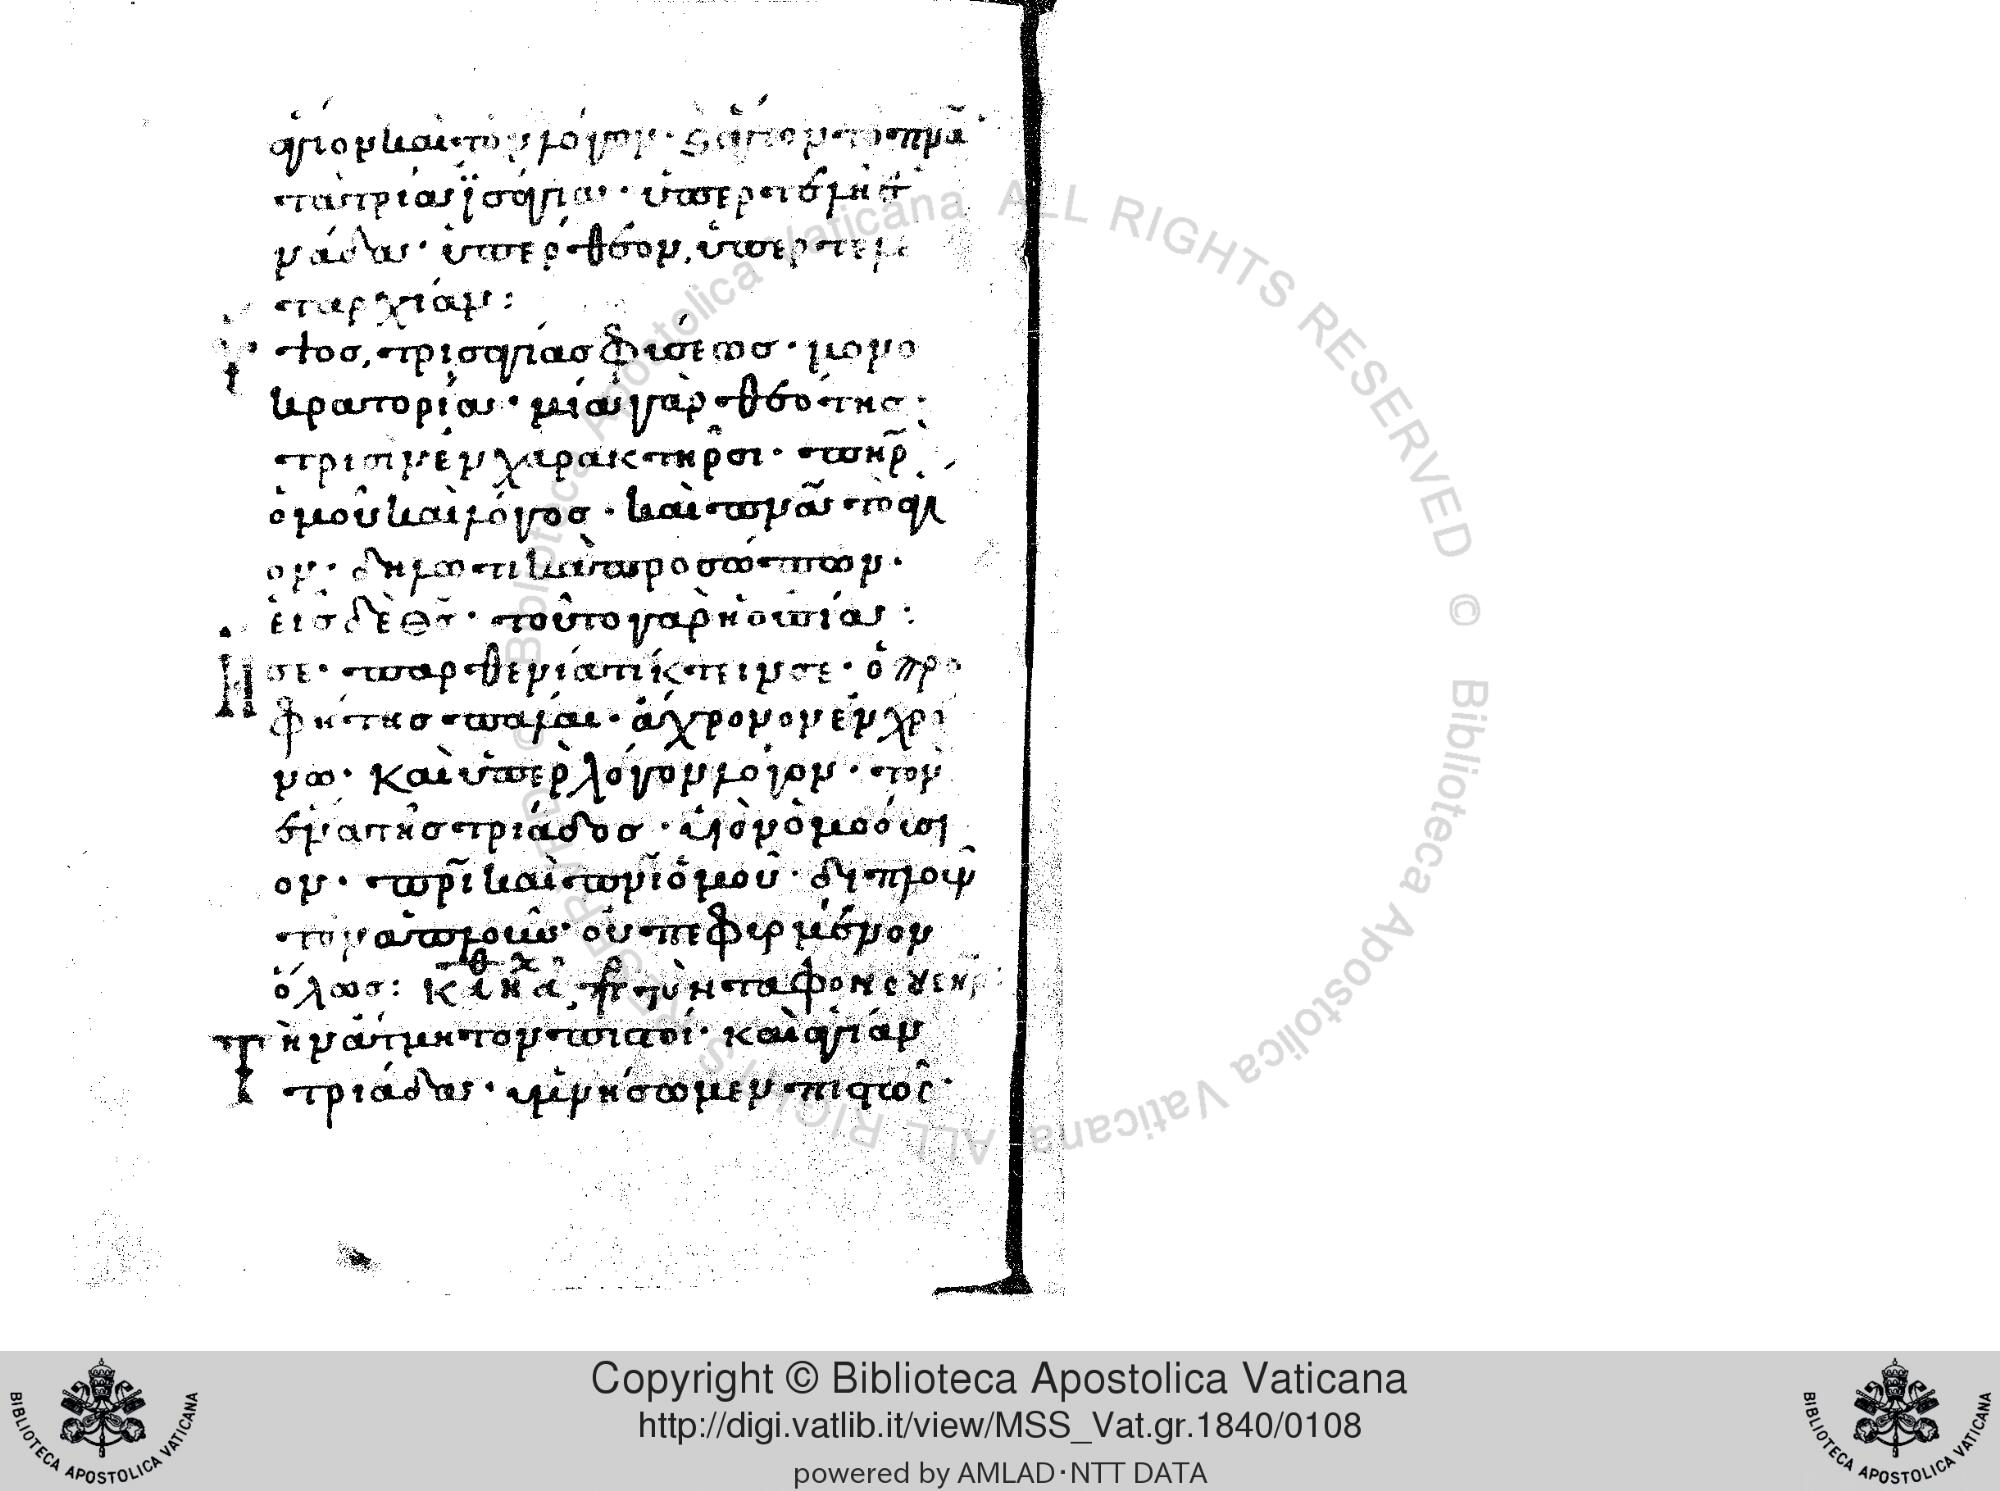 ἅγιον καὶ τὸν λόγον· ϗ ἅγιον τὸ πνᾶ·
τὰ τρία ϊσάγια·
νάδα· ὑπέρθεον, ὑπερτελ
ταρχίαν:
τος, τρισαγίας φύσεως· μονο
κρατορία· μία γὰρ θεότης·
τρισὶ μὲν χαρακτῆρσι· πηρ̃
ὁμοῦ καὶ λόγος· καὶ πνᾶ τὸ ἅγι
ον· δηλωτικὰ προσώπων·
εἷσ δὲ θσ̄· τοῦτο γὰρ ἡ οὐσία:
Η σε· παρθενία τίκτειν σε· ὁ προ
φήτης πάλαι· ἄχρονον ἐν χρό
νω· καὶ ὑπὲρ λόγον λόγον· τὸν
ἕνα τῆς τριάδος· υἱὸν ὁμοούσι
ον· πρ̄ι καὶ πνῖ ὁμοῦ· διπλοῦν
τὸν ἁπλοῦν· οὐ πεφυρμένον
ὅλως:
Τὴν ἄτμητον πιστοί· καὶ ἁγίαν
τριάδα· ὑμνήσωμεν πιστῶς·
Copyright © Biblioteca Apostolica Vaticana
http://digi.vatlib.it/view/MSS_Vat.gr.1840/0108
powered by AMLAD·NTT DATA
BIBLIOTECA APOSTOLICA VATICANA
BIBLIOTECA APOSTOLICA VATICANA
© Biblioteca Apostolica Vaticana ALL RIGHTS RESERVED © Biblioteca Apostolica Vaticana ALL RIGHTS RESERVED